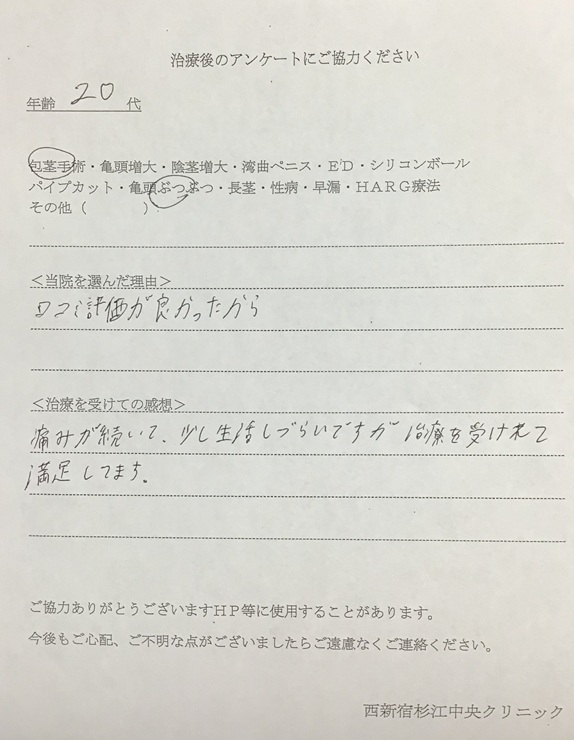 治療後のアンケートにご協力ください
年齢 20 代
包茎手術・亀頭増大・陰茎増大・湾曲ペニス・ED・シリコンボール
パイプカット・亀頭ぶつぶつ・長茎・性病・早漏・HARG療法
その他（　　　　）
＜当院を選んだ理由＞
口コミ評価が良かったから
＜治療を受けての感想＞
痛みが続いて、少し生活しづらいですが治療を受けれて
満足してます。
ご協力ありがとうございますHP等に使用することがあります。
今後もご心配、ご不明な点がございましたらご遠慮なくご連絡ください。
西新宿杉江中央クリニック